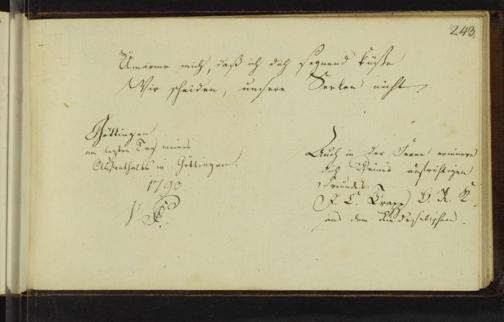 243.
Umarme mich, daß ich dich segnend küsse
Wir scheiden, unsere Seelen nicht.
Göttingen
am lezten Tag meines
Aufenthalts in Göttingen.
1790
Auch in der Ferne erinnere
dich Deines aufrichtigen
Freundes
F. C. Trapp
aus dem